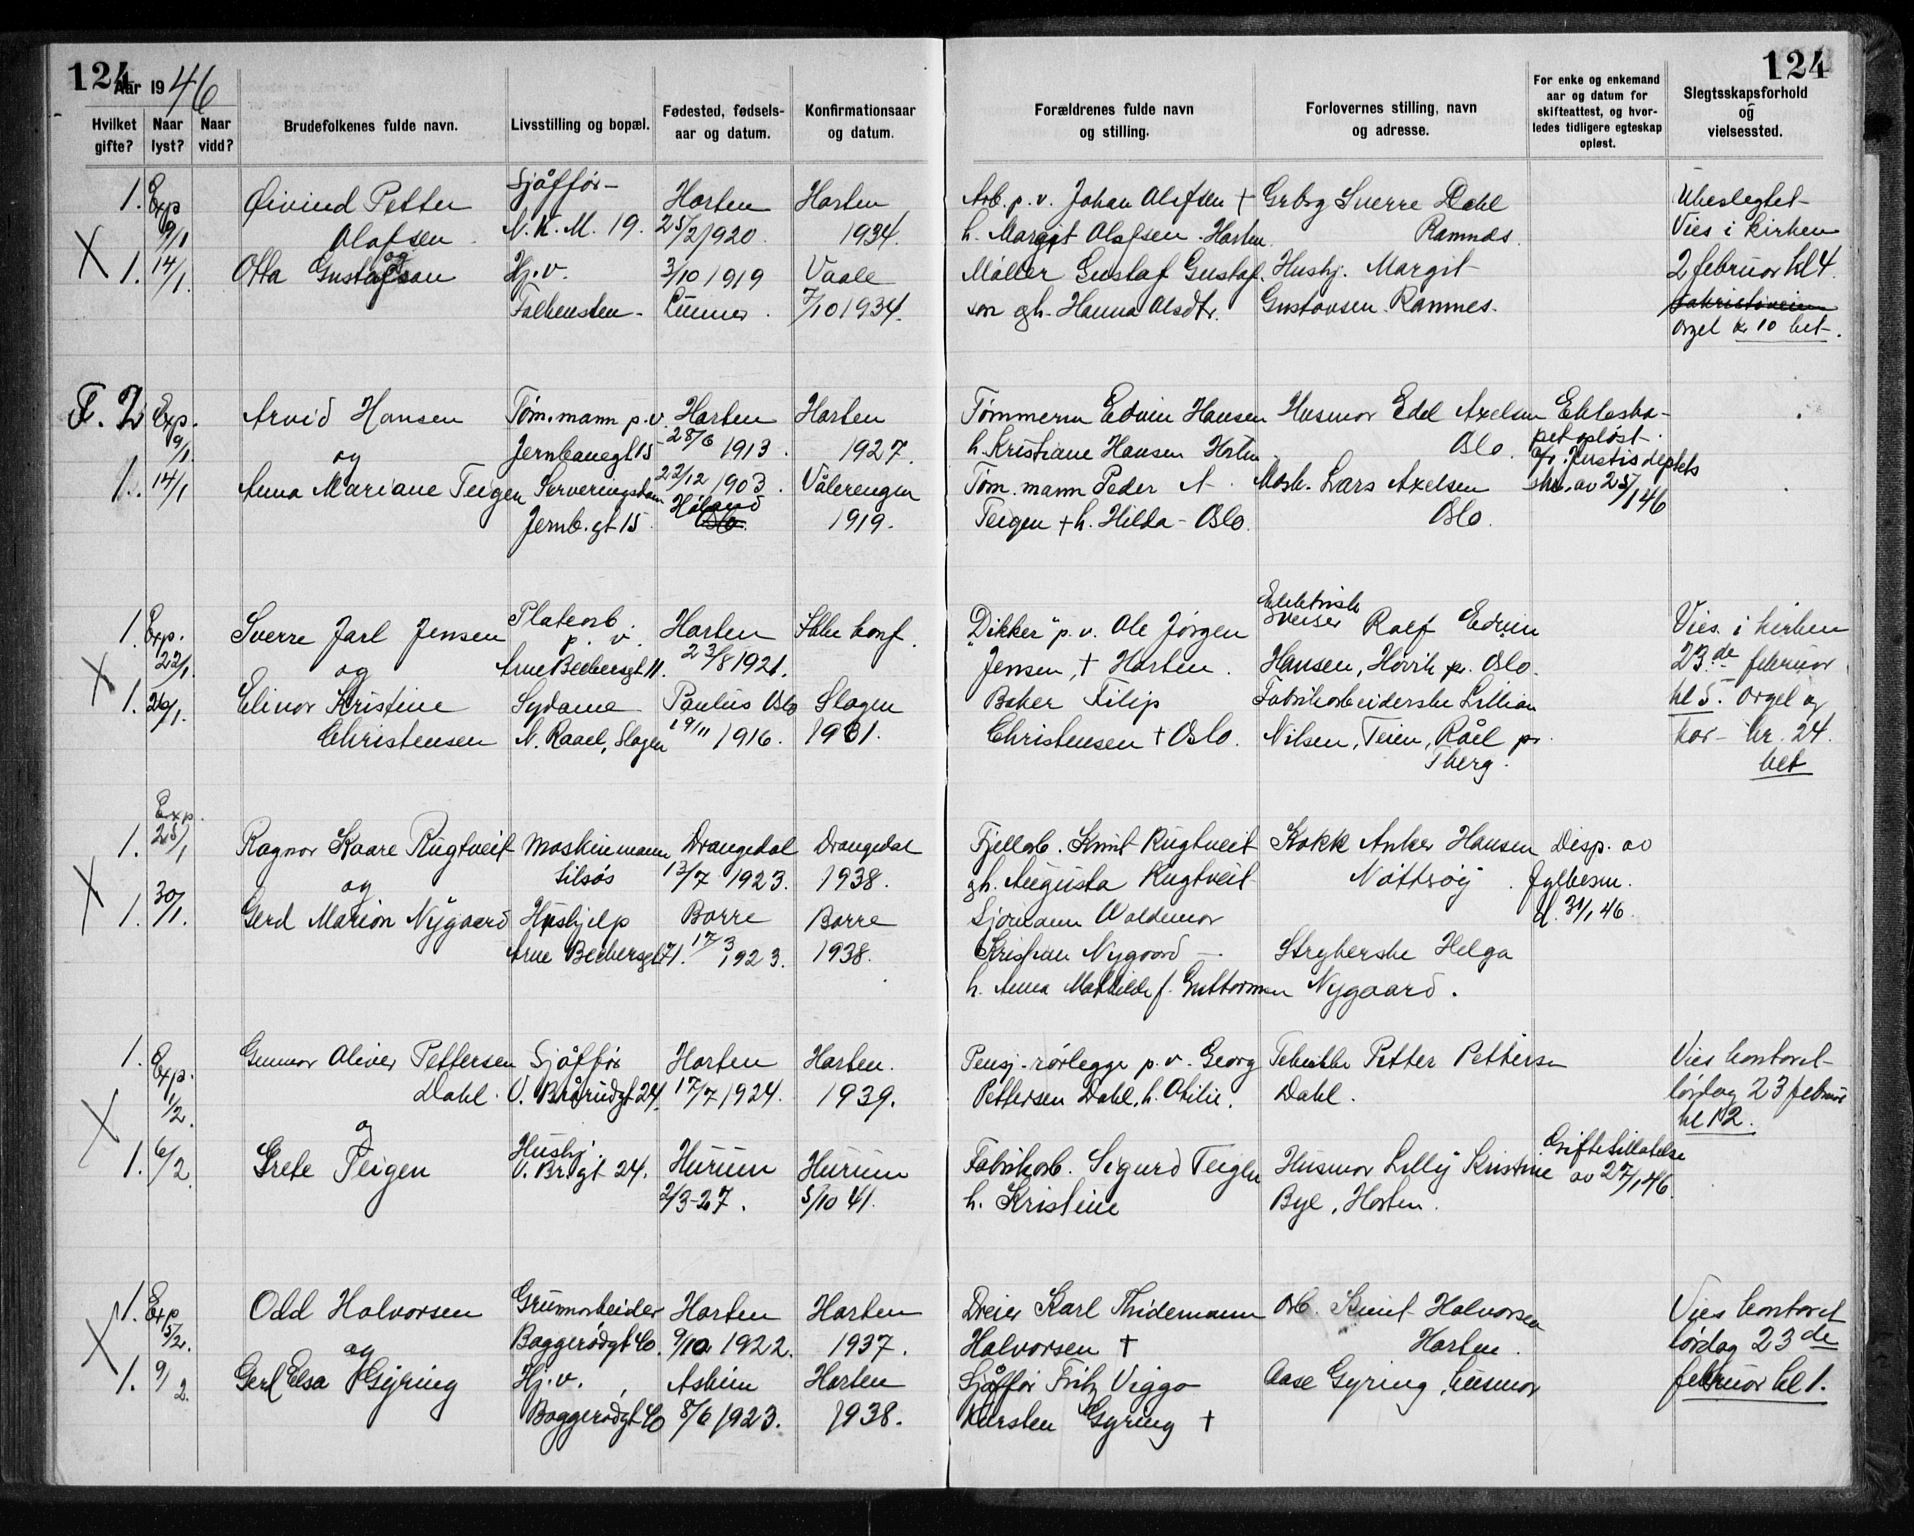 124
Aar 1946
Hvilket gifte?
Naar lyst?
Naar vidd?
Brudefolkenes fulde navn.
Livsstilling og bopæl.
Fødested, fødsels-
aar og datum.
Konfirmationsaar
og datum.
124
Forældrenes fulde navn
og stilling.
Forlovernes stilling, navn
og adresse.
For enke og enkemand
aar og datum for
skifteattest, og hvor-
ledes tidligere egteskap
opløst.
Slegtsskapsforhold
og
vielsessted.
1. Exp Øivind Petter Sjåffør- Horten Horten Arb. p. v. Johan Olafsen + Grbrg Sverre Dahl Ubeslegtet
9/1 Olafsen N. K. M. 19. 25/2 1920. 1934. h. Margit Olafsen. Horten. Ramnes. Vies i kirken
X og
1. 14/1 Gustafson Hj.v. 3/10 1919 Vaale Møller Gustaf Gustaf. Hushj. Margit 2 februar kl 4.
Falkensten. Lunner. 7/10 1934. son gh. Hanna Olsdtr. Gustavsen. Ramnes.
orgel kr 10 bet.
F. 2 Exp. Arvid Hansen Tøm.mann p.v. Horten Horten Tømmerm Edvin Hansen Husmor Edel Axelsen Ekteska-
9/1 og Jernbanegt 15 28/6 1913. 1927. h. Kristiane Hansen Horten Oslo. pet opløst.
1. 14/1 Anna Mariane Teigen Serveringsdame 22/12 1903. Vålerengen Tøm.mann Peder A. Mask. Lars Axelsen Justisdeptets
Jernb.gt 15. Høland Oslo 1919. Teigen + h. Hilda - Oslo. Oslo. skr. av 25/1 46
1. Exp. Sverre Jarl Jensen Platearb. p. v. Horten Ikke konf. "Dikker" p. v. Ole Jørgen Elektrisk sveiser Rolf Edvin Vies i kirken
22/1 og Arne Beckersgt 11. 23/8 1921. Jensen, + Horten. Hansen, Høvik pr. Oslo. 23.de februar
X
1. 26/1. Elinor Kristine Sydame Paulus Oslo Slagen Baker Filip Fabrikarbeiderske Lillian kl 5. Orgel og
Christensen N. Raael, Slagen 19/11 1916. 1931. Christensen + Oslo. Nilsen, Teien, Råel pr. kor - kr. 24.
Tberg. bet
Exp.
1. 25/1 Ragnar Kaare Rugtveit Maskinmann Drangedal Drangedal Fjellarb. Knut Rugtveit Kokk Anker Hansen Disp. av
og tilsøs 13/7 1923. 1938. gh. Augusta Rugtveit Nøtterøy. fylkesm.
X d. 31/1 46.
1. 30/1. Gerd Marion Nygaard Hushjelp Borre Borre Sjømann Waldemar
Arne Beckersgt 71. 17/3 1923. 1938. Kristian Nygaard - Strykerske Helga
h. Anna Mathilde f. Guttormsen Nygaard.
1. Exp. Gunnar Oliver Pettersen Sjåffør Horten Horten. Pensj. rørlegge p.v. Georg Petter Pettersen Vies kontoret
1/2. Dahl. V. Brårudgt 24. 17/7 1924. 1939. Pettersen Dahl, h. Otilie. Dahl. lørdag 23 februar
X og kl 12.
1. 6/2 Grete Teigen Hushj. V. Br.gt 24. Hurum Hurum Fabrikarb. Sigurd Teigen Husmor Lilly Kristine Giftetillatelse
2/3-27. 5/10 41. h. Kristine Bye, Horten. av 27/1 46.
1. Exp Odd Halvorsen Grunnarbeider Horten Horten Dreier Karl Thidemann Arb. Knut Halvorsen Vies kontoret
5/2. og Baggerødgt 9/10 1922. 1937. Halvorsen + Horten. lørdag 23 de
X
1. 9/2 Gerd Elsa Gyring Hj.v. Askim Horten Sjåffør Fritz Viggo Aase Gyring, husmor februar kl 1.
Baggerødgt 8/6 1923. 1938. Karsten Gyring +